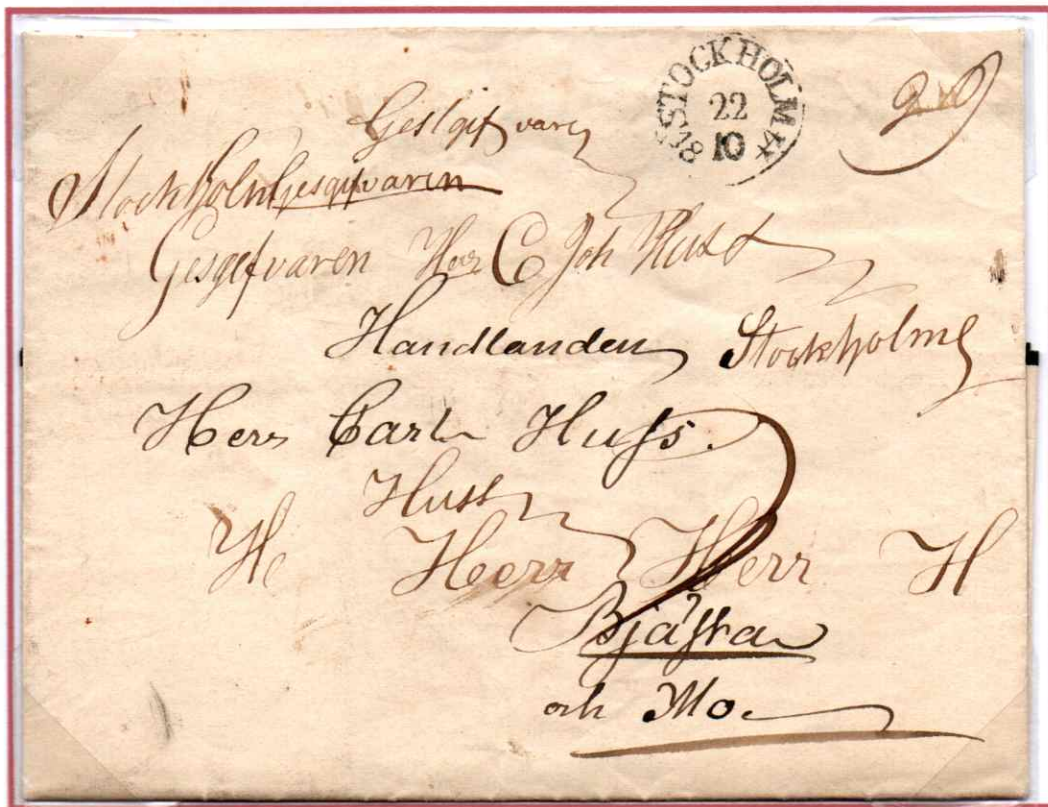 STOCKHOLM
22
10
Stockholm Gesgifvaren
Gesgifvaren Herr C Joh Huss
Handlanden Stockholm
Herr Carl Huss.
Huss
H Herr Herr H
Bjästa
och Mo